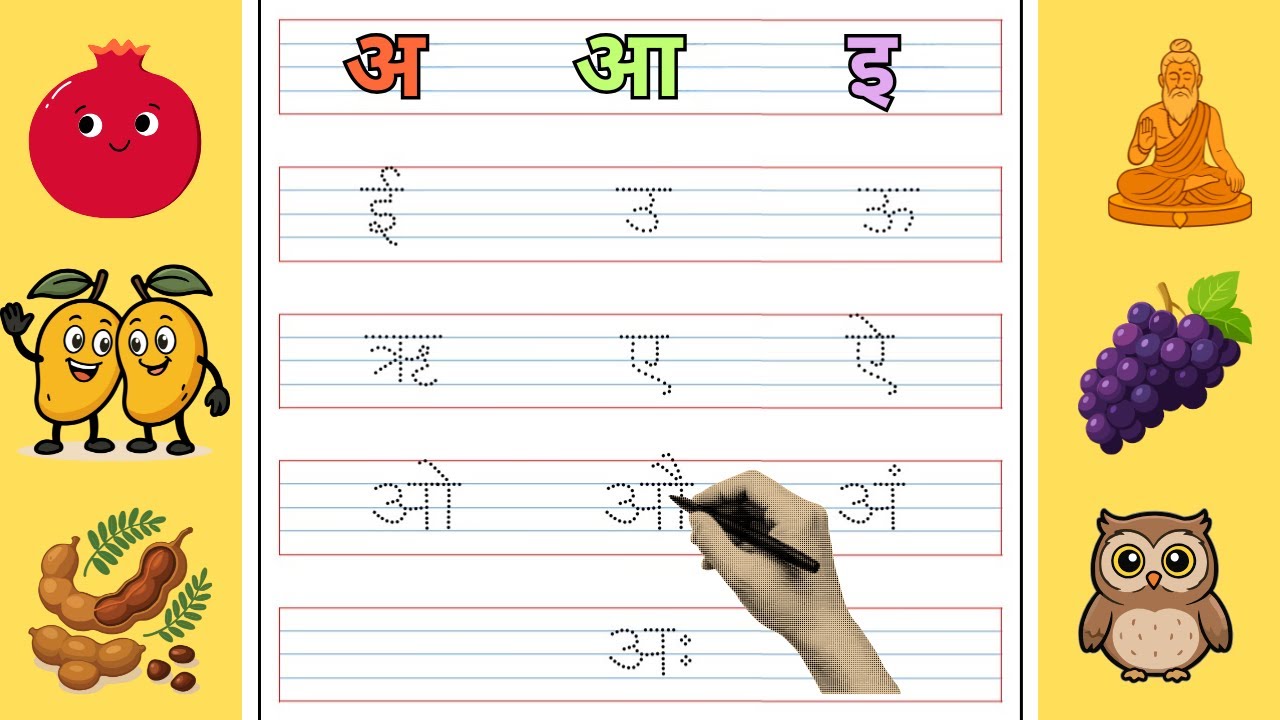 अ आ इ
ई उ ऊ
ऋ ए ऐ
ओ औ अं
अः